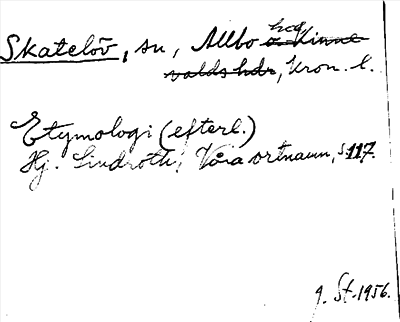 Skatelöv, sn, Allbo hd,
Kron. l.
Etymologi (efterl.)
Hj. Lindroth, Våra ortnamn, s. 117.
g. St. 1956.